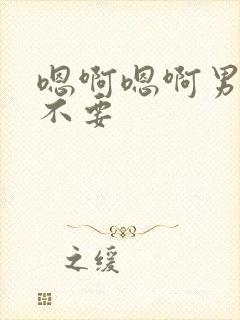 嗯啊嗯啊男
不要
之缓